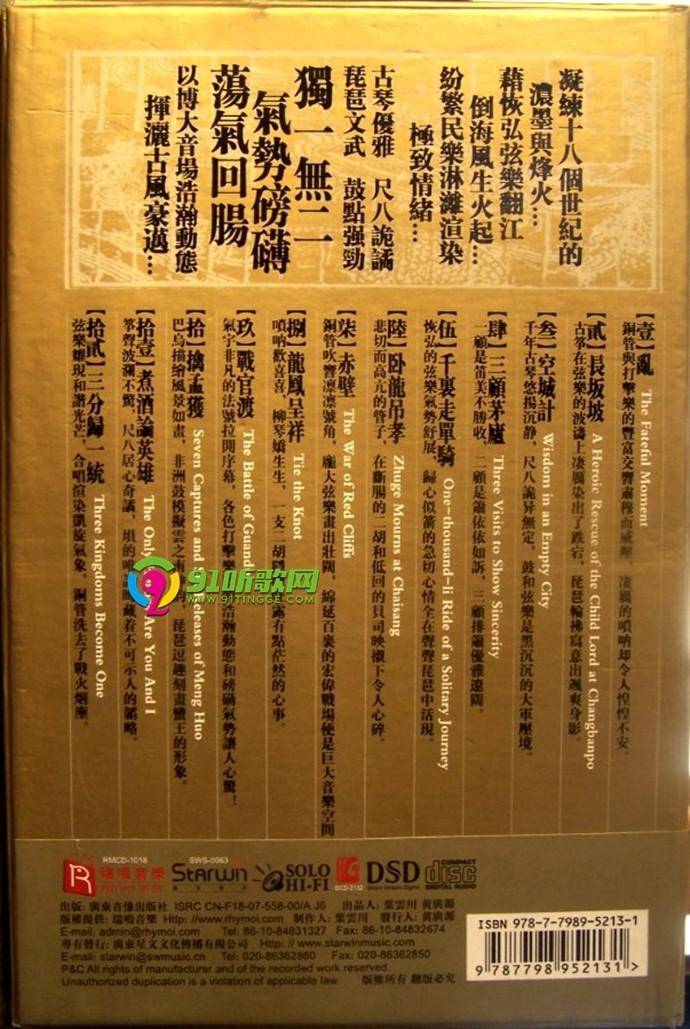 凝練十八個世紀的
濃墨與烽火…
藉恢弘弦樂翻江
倒海風生火起…
紛繁民樂淋灕渲染
極致情緒…
古琴優雅 尺八詭譎
琵琶文武 鼓點强勁
獨一無二
氣勢磅礴
蕩氣回腸
以博大音場浩瀚動態
揮灑古風豪邁…
【壹】亂 The Fateful Moment
銅管與打擊樂的豐富交響肅穆而威壓，凄厲的嗩吶却令人惶惶不安。
【貳】長坂坡 A Heroic Rescue of the Child Lord at Changbanpo
古筝在弦樂的波濤上凄厲染出了跌宕，琵琶輪拂寫意出颯爽身影。
【叁】空城計 Wisdom in an Empty City
千年古琴悠揚沉静，尺八詭异無定，鼓和弦樂是黑沉沉的大軍壓境。
【肆】三顧茅廬 Three Visits to Show Sincerity
一顧是笛美不勝收，二顧是簫依依如訴，三顧排簫優雅遼闊。
【伍】千裏走單騎 One-thousand-li Ride of a Solitary Journey
恢弘的弦樂氣勢舒展，歸心似箭的急切心情全在聲聲琵琶中活現。
【陸】卧龍吊孝 Zhuge Mourns at Chaisang
悲切而高亢的管子，在斷腸的二胡和低回的貝司映襯下令人心碎。
【柒】赤壁 The War of Red Cliffs
銅管吹響凛凛號角，龐大弦樂畫出壯闊，綿延百裏的宏偉戰場便是巨大音樂空間
【捌】龍鳳呈祥 Tie the Knot
嗩吶歡喜喜，柳琴嬌生生，一支二胡 露有點茫然的心事。
【玖】戰官渡 The Battle of Guand
氣宇非凡的法號拉開序幕，各色打擊樂 浩瀚動態和磅礴氣勢讓人心驚！
【拾】擒孟獲 Seven Captures and S Releases of Meng Huo
巴烏描繪風景如畫，非洲鼓模擬雲之南 琵琶逗趣刻畫蠻王的形象。
【拾壹】煮酒論英雄 The Only Are You And I
筝聲波瀾不驚，尺八居心奇譎，塤的 藏着不可示人的韜略。
【拾貳】三分歸一統 Three Kingdoms Become One
弦樂耀現和諧光芒，合唱渲染凱旋氣象，銅管洗去了戰火烟塵。
91听歌网
WWW.91TINGGE.COM
RMCD-1018
瑞鳴音樂
SWS-0063
Starwin
SOLO
HI-FI
DCD-2132
DSD
Direct Stream Digital
COMPACT
disc
DIGITAL AUDIO
出版: 廣東音像出版社 ISRC CN-F18-07-558-00/A J6 出品人: 葉雲川 黄廣源
版權提供: 瑞鳴音樂 Http://www.rhymoi.com 制作人: 葉雲川 發行人: 黄廣源
E-mail: admin@rhymoi.com Tel: 86-10-84831327 Fax: 86-10-84832674
專有發行: 廣東星文文化傳播有限公司 Http://www.starwinmusic.cn
E-mail: starwin@swmusic.cn Tel: 020-86362860 Fax: 020-86362850
P&C All rights of manufacturer and of the recorded work reserved.
Unauthorized duplication is a violation of applicable law. 版權所有 翻版必究
ISBN 978-7-7989-5213-1
9 787798 952131 >